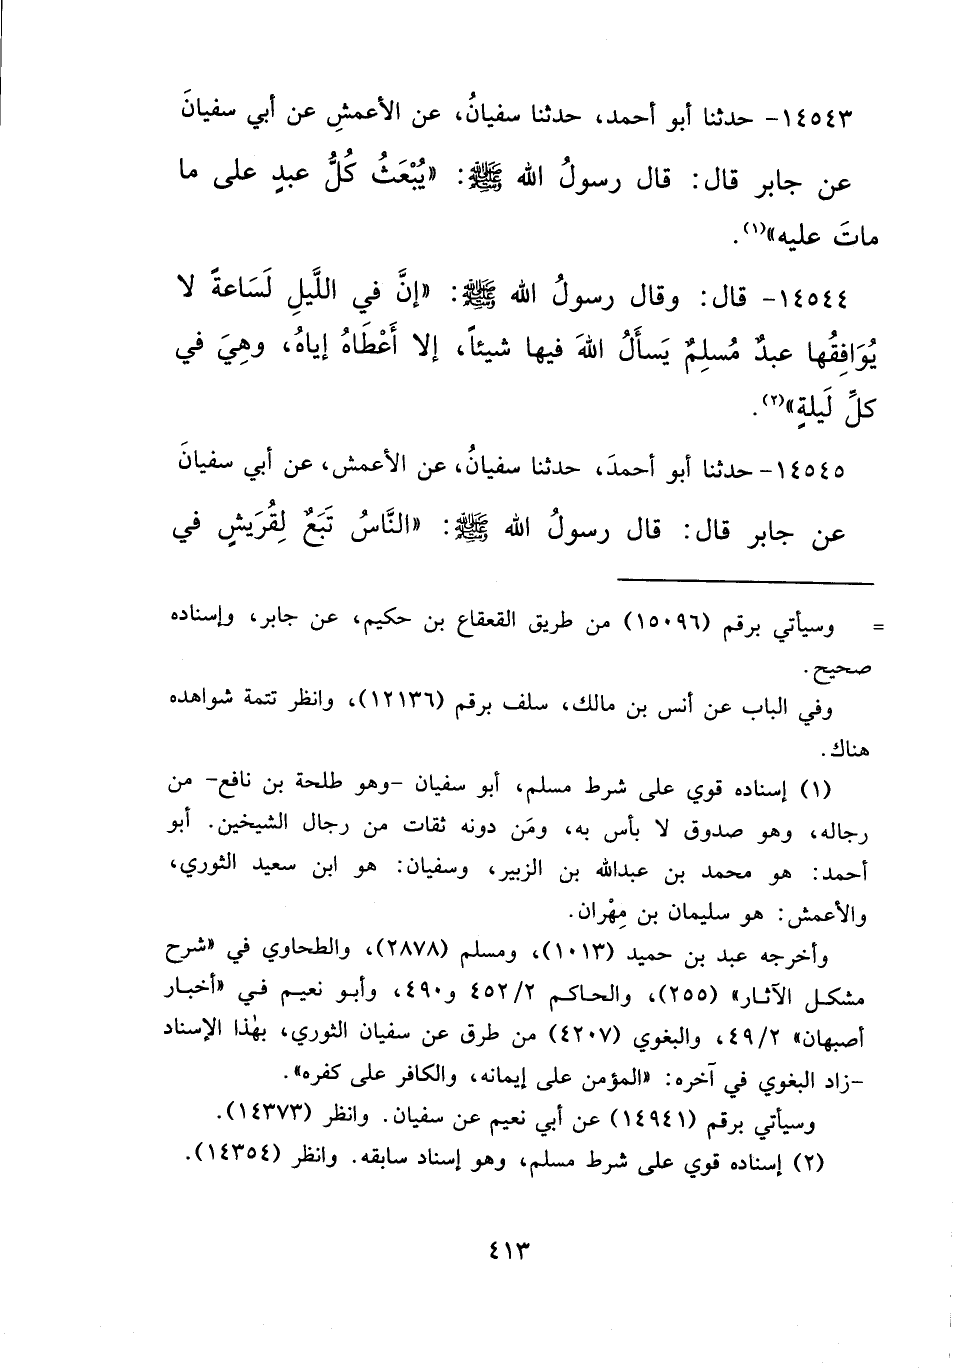 ١٤٥٤٣- حدثنا أبو أحمد، حدثنا سفيانُ، عن الأعمشِ عن أبي سفيانَ
عن جابر قال: قال رسولُ الله ﷺ: «يُبْعَثُ كُلُّ عبدٍ على ما
ماتَ عليه»(١).
١٤٥٤٤- قال: وقال رسولُ الله ﷺ: «إنَّ في اللَّيلِ لَسَاعةً لا
يُوَافِقُها عبدٌ مُسلِمٌ يَسأَلُ اللهَ فيها شيئاً، إلا أَعْطَاهُ إياهُ، وهِيَ في
كلِّ لَيلةٍ»(٢).
١٤٥٤٥- حدثنا أبو أحمدَ، حدثنا سفيانُ، عن الأعمش، عن أبي سفيانَ
عن جابر قال: قال رسولُ الله ﷺ: «النَّاسُ تَبَعٌ لِقُرَيشٍ في
= وسيأتي برقم (١٥٠٩٦) من طريق القعقاع بن حكيم، عن جابر، وإسناده
صحيح.
وفي الباب عن أنس بن مالك، سلف برقم (١٢١٣٦)، وانظر تتمة شواهده
هناك.
(١) إسناده قوي على شرط مسلم، أبو سفيان -وهو طلحة بن نافع- من
رجاله، وهو صدوق لا بأس به، ومَن دونه ثقات من رجال الشيخين. أبو
أحمد: هو محمد بن عبدالله بن الزبير، وسفيان: هو ابن سعيد الثوري،
والأعمش: هو سليمان بن مِهْران.
وأخرجه عبد بن حميد (١٠١٣)، ومسلم (٢٨٧٨)، والطحاوي في «شرح
مشكل الآثار» (٢٥٥)، والحاكم ٤٥٢/٢ و٤٩٠، وأبو نعيم في «أخبار
أصبهان» ٤٩/٢، والبغوي (٤٢٠٧) من طرق عن سفيان الثوري، بهٰذا الإسناد
-زاد البغوي في آخره: «المؤمن على إيمانه، والكافر على كفره».
وسيأتي برقم (١٤٩٤١) عن أبي نعيم عن سفيان. وانظر (١٤٣٧٣).
(٢) إسناده قوي على شرط مسلم، وهو إسناد سابقه. وانظر (١٤٣٥٤).
٤١٣